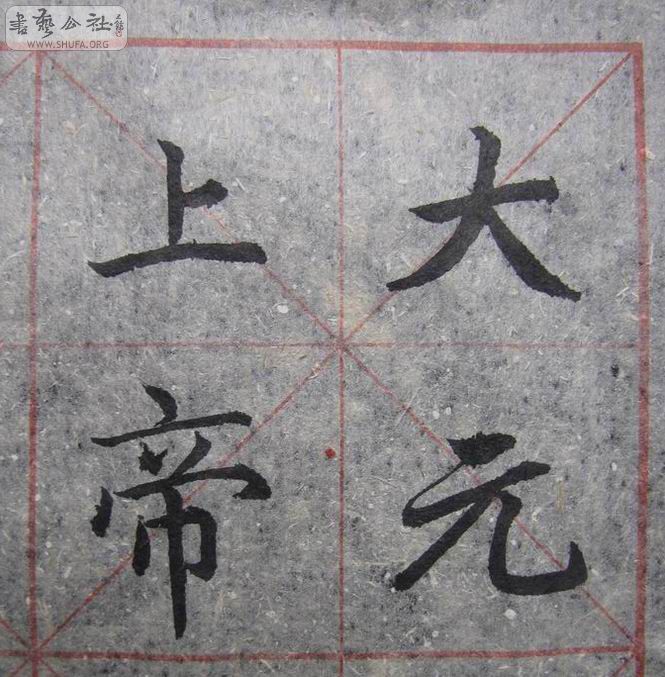 大元
上帝
書藝公社
WWW.SHUFA.ORG